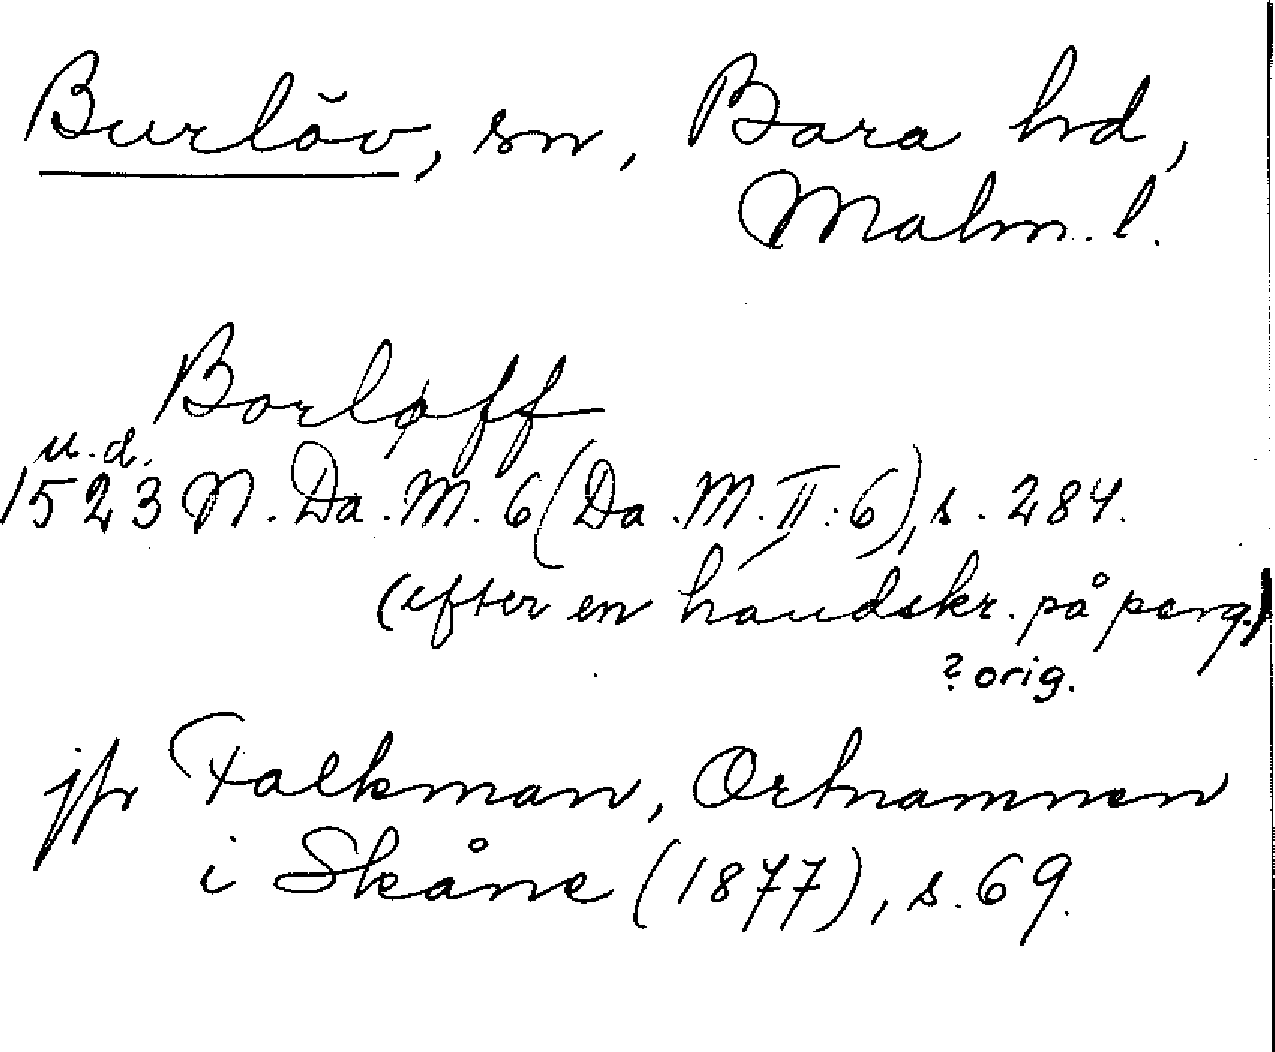 Burlöv, sn, Bara hd,
Malm. l.
Borløff
u.d.
1523 N. Da. M. 6 (Da. M. II: 6), s. 284.
(efter en handskr. på perg.)
? orig.
jfr Falkman, Ortnamnen
i Skåne (1877), s. 69.